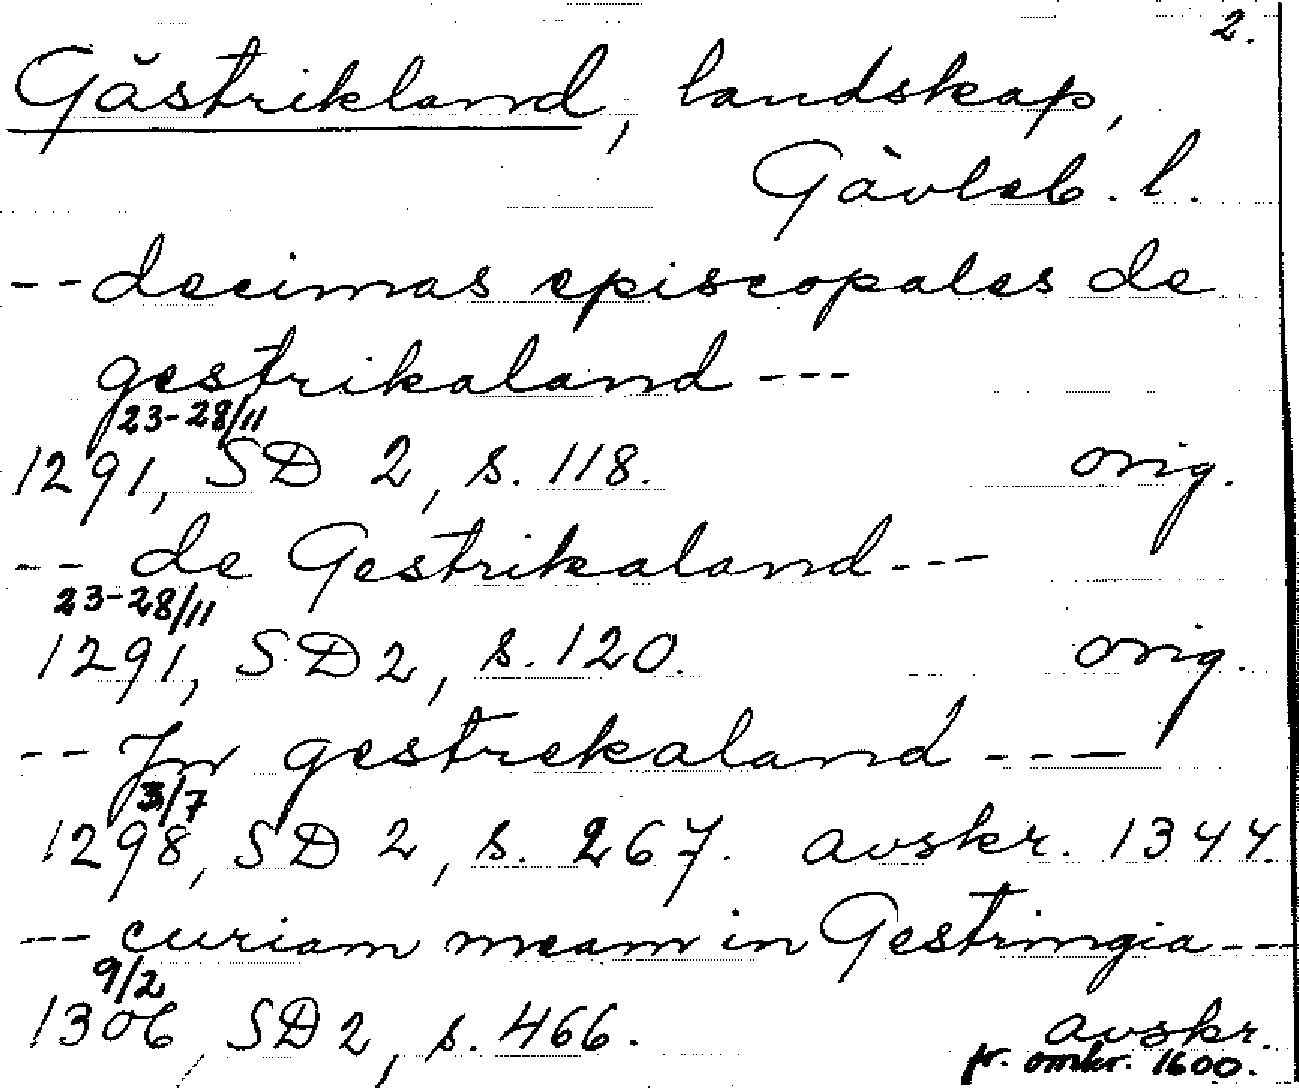 2.
Gästrikland, landskap,
Gävleb. l.
-- decimas episcopales de
gestrikaland ---
23-28/11
1291, SD 2, s. 118. orig.
-- de Gestrikaland ---
23-28/11
1291, SD 2, s. 120. orig.
-- Jn gestrekaland ---
3/7
1298, SD 2, s. 267. avskr. 1344.
--- curiam meam in Gestringia ---
9/2
1306, SD 2, s. 466. avskr.
fr. omkr. 1600.